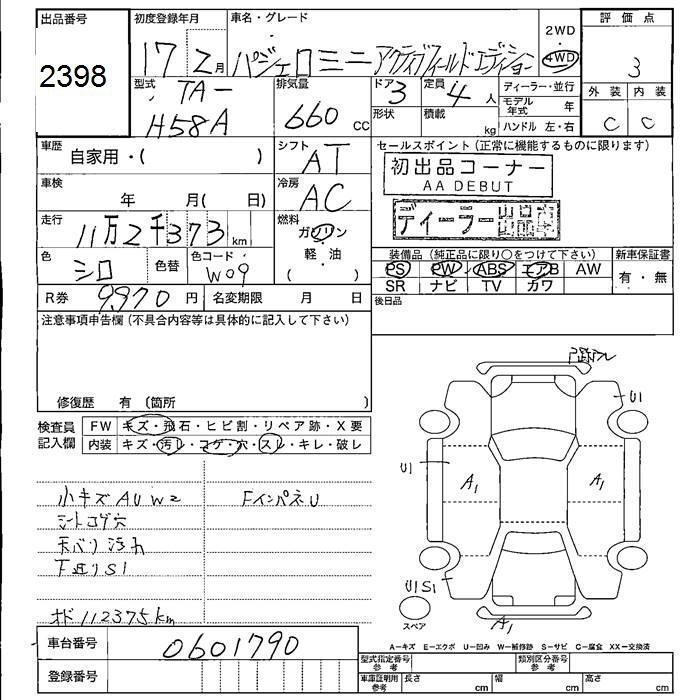 出品番号
2398
初度登録年月
17 2月
車名・グレード
パジェロミニ アクティブフィールドエディション
2WD
4WD
評価点
3
外装 内装
C C
型式
TA-
H58A
排気量
660 cc
ドア
3
定員
4 人
形状
積載
kg
ディーラー・並行
モデル年式 年
ハンドル 左・右
車歴
自家用・( )
シフト
AT
セールスポイント(正常に機能するものに限ります)
初出品コーナー
AA DEBUT
ディーラー出品車
車検
年 月( 日)
冷房
AC
走行
11万2千373 km
燃料
ガソリン
軽・油
( )
色
シロ
色替
色コード
W09
装備品(純正品に限り○をつけて下さい)
PS PW ABS エアB AW
SR ナビ TV カワ
新車保証書
有・無
R券 9,970 円
名変期限 月 日
後日品
注意事項申告欄(不具合内容等は具体的に記入して下さい)
修復歴 有(箇所 )
検査員
記入欄
FW キズ・飛石・ヒビ割・リペア跡・X要
内装 キズ・汚れ・コゲ・穴・スレ・キレ・破レ
小キズAUW2
シートコゲ穴
天バリ汚れ
下廻りS1
オド112375km
FインパネU
U1
U1
A1
A1
U1S1
A1
スペア
A−キズ E−エクボ U−凹み W−補修跡 S−サビ C−腐食 XX−交換済
車台番号
0601790
登録番号
型式指定番号
参考
類別区分番号
参考
車庫証明用
参考
長さ cm
幅 cm
高さ cm